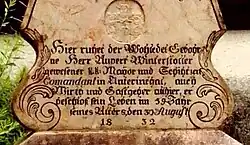 Hier ruhet der Wohledel Gebohr=
ne Herr Rupert Wintersteller
gewesener k:k: Mayor und Schütze
Comandant in Unterinthal, auch
Wirth und Gastgeber alhier, er
beschloß sein Leben im 59 Jahr
seines Alters, den 30 August
1832